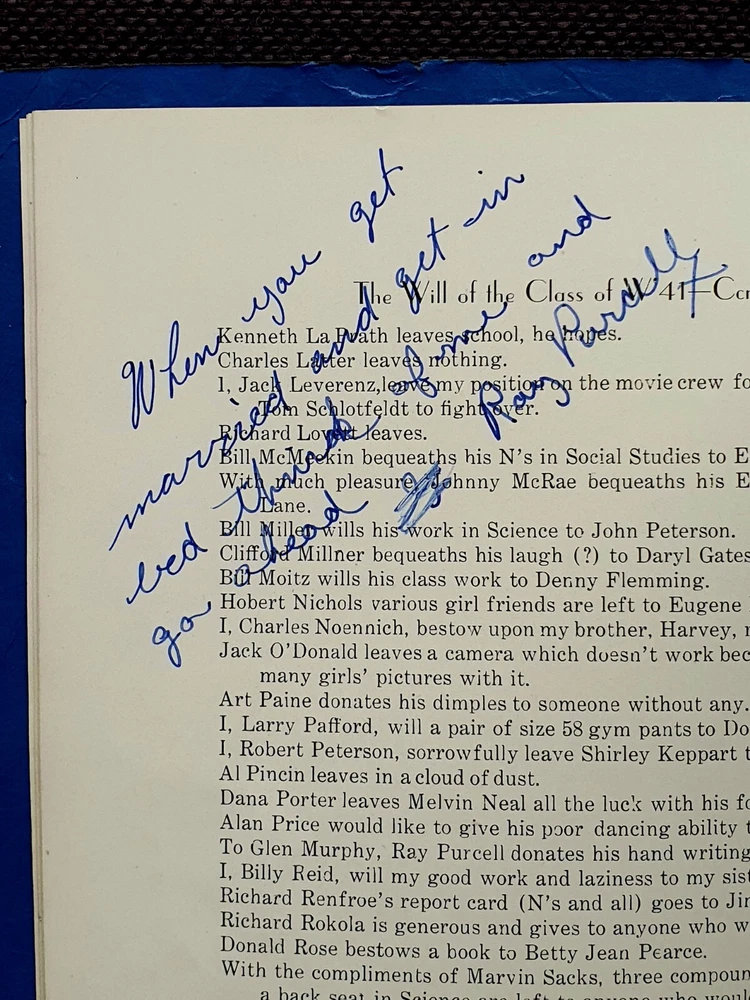 When you get
married and get in
bed think of me and
go ahead Ray Purcell
The Will of the Class of W'41—Con
Kenneth La Prath leaves school, he hopes.
Charles Latter leaves nothing.
I, Jack Leverenz, leave my position on the movie crew fo
Tom Schlotfeldt to fight over.
Richard Lovett leaves.
Bill McMeekin bequeaths his N's in Social Studies to E
With much pleasure, Johnny McRae bequeaths his E
Lane.
Bill Miller wills his work in Science to John Peterson.
Clifford Millner bequeaths his laugh (?) to Daryl Gates
Bill Moitz wills his class work to Denny Flemming.
Hobert Nichols various girl friends are left to Eugene
I, Charles Noennich, bestow upon my brother, Harvey, m
Jack O'Donald leaves a camera which doesn't work bec
many girls' pictures with it.
Art Paine donates his dimples to someone without any.
I, Larry Pafford, will a pair of size 58 gym pants to Do
I, Robert Peterson, sorrowfully leave Shirley Keppart t
Al Pincin leaves in a cloud of dust.
Dana Porter leaves Melvin Neal all the luck with his fo
Alan Price would like to give his poor dancing ability t
To Glen Murphy, Ray Purcell donates his hand writing
I, Billy Reid, will my good work and laziness to my sist
Richard Renfroe's report card (N's and all) goes to Jim
Richard Rokola is generous and gives to anyone who w
Donald Rose bestows a book to Betty Jean Pearce.
With the compliments of Marvin Sacks, three compoun
a back seat in Science are left to anyone who woul